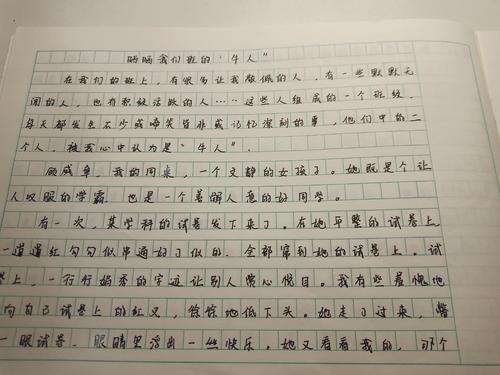 晒晒我们班的“牛人”
在我们的班上，有很多让我敬佩的人，有一些默默无
闻的人，也有积极活跃的人……这些人组成的一个班级，
每天都发生不少或啼笑皆非或记忆深刻的事，他们中的二
个人，被我心中认为是“牛人”．
顾咸阜，我的同桌，一个文静的女孩子。她既是个让
人叹服的学霸，也是一个善解人意的好同学。
有一次，某学科的试卷发下来了。在她平整的试卷上，
一道道红勾勾似串通好了似的，全部窜到她的试卷上。试
卷上，一行行娟秀的字迹让别人赏心悦目。我有些羞愧地
向自己试卷上的红叉，惊惊地低下头。她走了过来，瞥
一眼试卷，眼睛里浮出一丝快乐。她又看看我的，那个